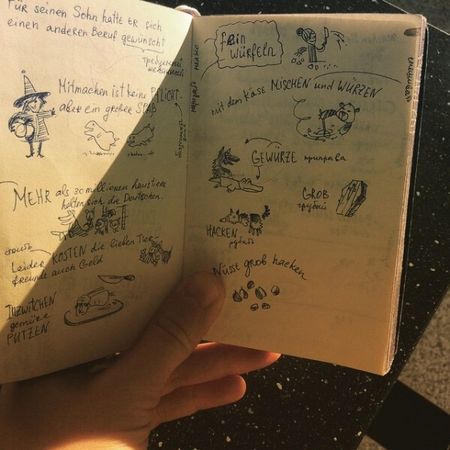 Für seinen Sohn hatte er sich
einen anderen Beruf gewünscht
Mitmachen ist keine PFLICHT
aber ein großer Spaß
MEHR als 20 millionen haustiere
halten sich die Deutschen.
Leider KOSTEN die lieben Tier-
freunde auch Geld
INZWITCHEN
gemüse
PUTZEN
fein
würfeln
mit den Käse MISCHEN und WÜRZEN
GEWÜRZE приправа
GROB
грубый
HACKEN
рубить
Nüsse grob hacken